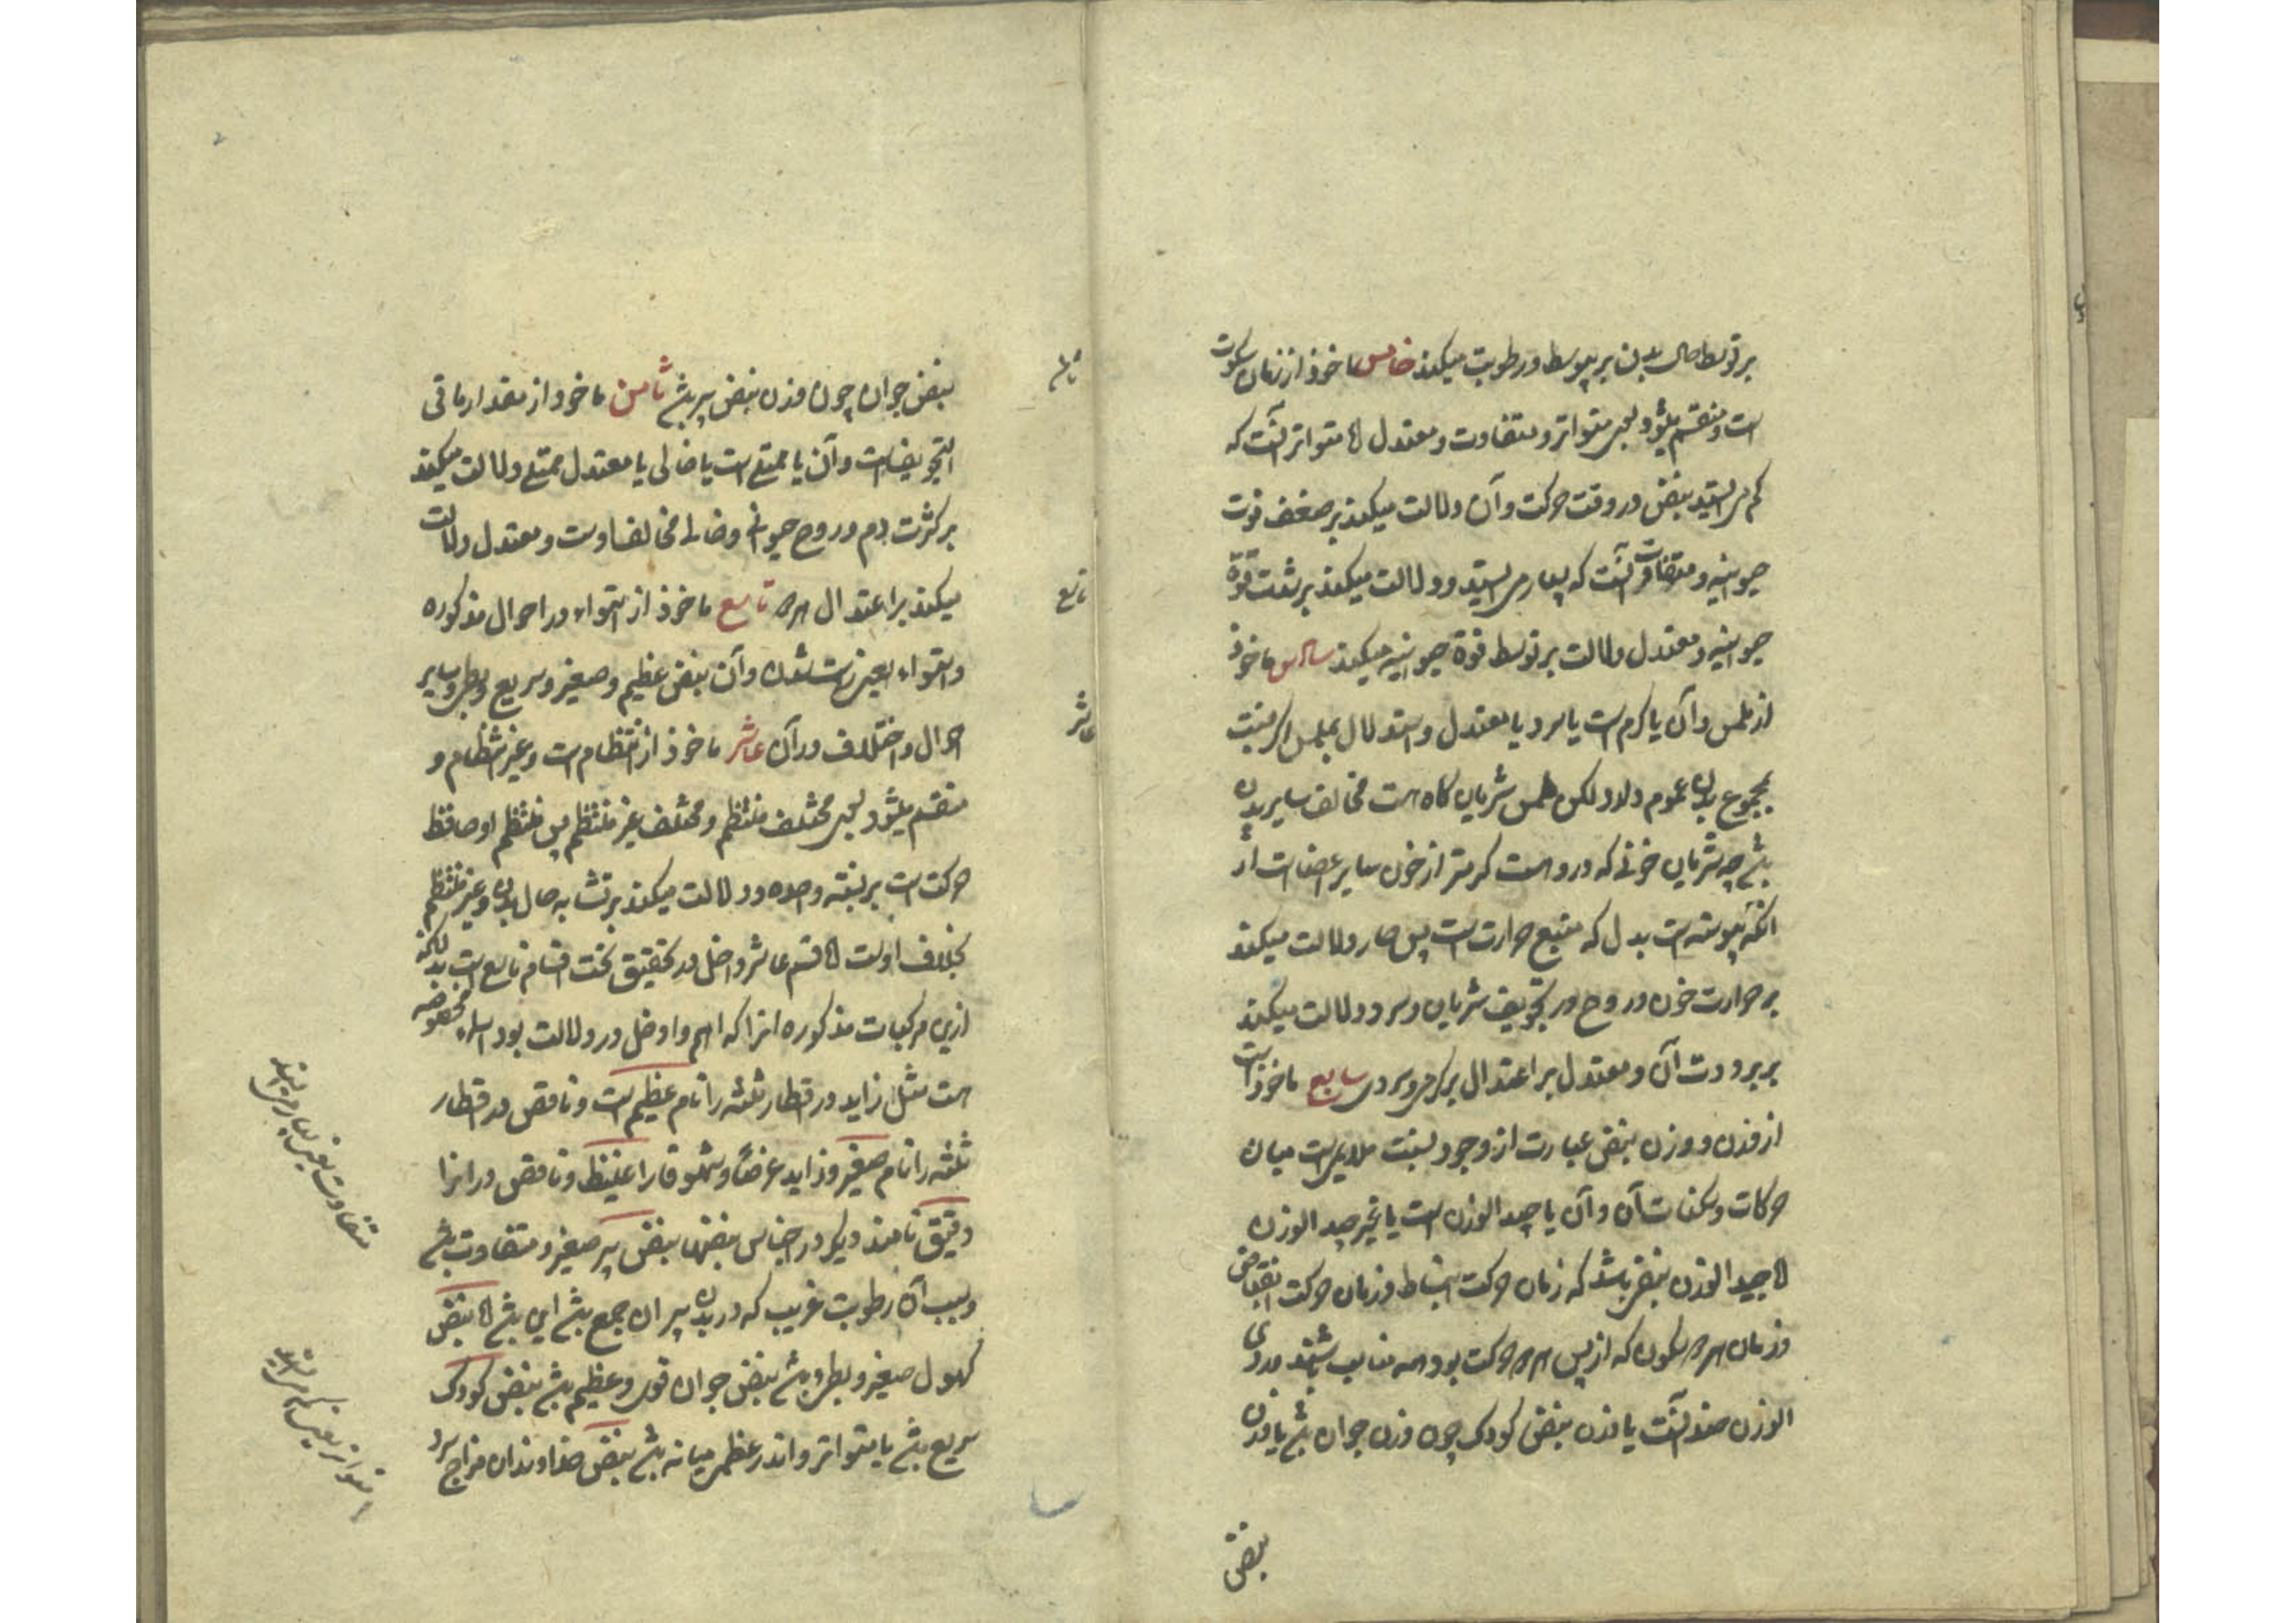 بر توسط حال بدن بر یبوسط و رطوبت میکند خامس ماخوذ از زمان سکوت
است و منقسم میشود بسوی متواتر و متفاوت و معتدل اما متواتر آنست که
کم می ایستد نبض در وقت حرکت و آن دلالت میکند بر ضعف قوت
حیوانیه و متفاوت آنست که بسیار می ایستد و دلالت میکند بر شدت قوة
حیوانیه و معتدل دلالت بر توسط قوة حیوانیه میکند سادس ماخوذ
از ملمس و آن یا گرم است یا سرد یا معتدل و استدلال بملمس اگر نسبت
بمجموع بدن عموم دارد لکن ملمس شریان گاه هست مخالف سایر بدن
باشد چه شریان خونی که درو هست گرمتر از خون سایر اعضاست از
آنکه پیوسته است بدل که منبع حرارت است پس حار دلالت میکند
بر حرارت خون و روح در تجویف شریان و سرد دلالت میکند
بر برودت آن و معتدل بر اعتدال بر گرمی و سردی سابع ماخوذ است
از وزن و وزن نبض عبارت از وجود نسبت ملایم است میان
حرکات و سکنات آن و آن یا جید الوزن است یا غیر جید الوزن
اما جید الوزن نبضی باشد که زمان حرکت انبساط و زمان حرکت انقباض
و زمان هر دو سکون که از پس هر دو حرکت بود همه متناسب باشند و ردی
الوزن ضد آنست یا وزن نبض کودک چون وزن جوان باشد یا وزن
نبض
نبض جوان چون وزن نبض پیر باشد ثامن ماخوذ از مقدار ما فی
التجویف است و آن یا ممتلی است یا خالی یا معتدل ممتلی دلالت میکند
بر کثرت دم و روح حیوانی و خالی مخالف اوست و معتدل دلالت
میکند بر اعتدال هر دو تاسع ماخوذ از استواء در احوال مذکوره
و استواء بعین راست شدن و آن نبض عظیم و صغیر و سریع و بطی و سایر
احوال و اختلاف در آن عاشر ماخوذ از انتظام است و غیر انتظام و
منقسم میشود بسوی مختلف منتظم و مختلف غیر منتظم پس منتظم او حافظ
حرکت است بر نسبته واحده و دلالت میکند بر تشابه حال بدن و غیر منتظم
بخلاف اوست اما قسم عاشر داخل در تحقیق تحت اقسام تاسع است بدانکه
ازین مرکبات مذکوره آنرا که اهم و ادخل در دلالت بود اسماء مخصوصه
است مثل زاید در اقطار ثلثه را نام عظیم است و ناقص در اقطار
ثلثه را نام صغیر و زاید عرضا و شهوقا را غلیظ و ناقص در انرا
دقیق نامند دیگر در اجناس نبضها نبض پیر صغیر و متفاوت باشد
و بسبب آن رطوبت غریب که در بدن پیران جمع باشد این باشد اما نبض
کهول صغیر و بطی باشد نبض جوان قوی و عظیم باشد نبض کودک
سریع باشد یا متواتر و اندر عظم میانه باشد نبض خداوندان مزاج سرد
تاسع
عاشر
متفاوت یعنی بسیار می ایستد
متواتر یعنی کم می ایستد